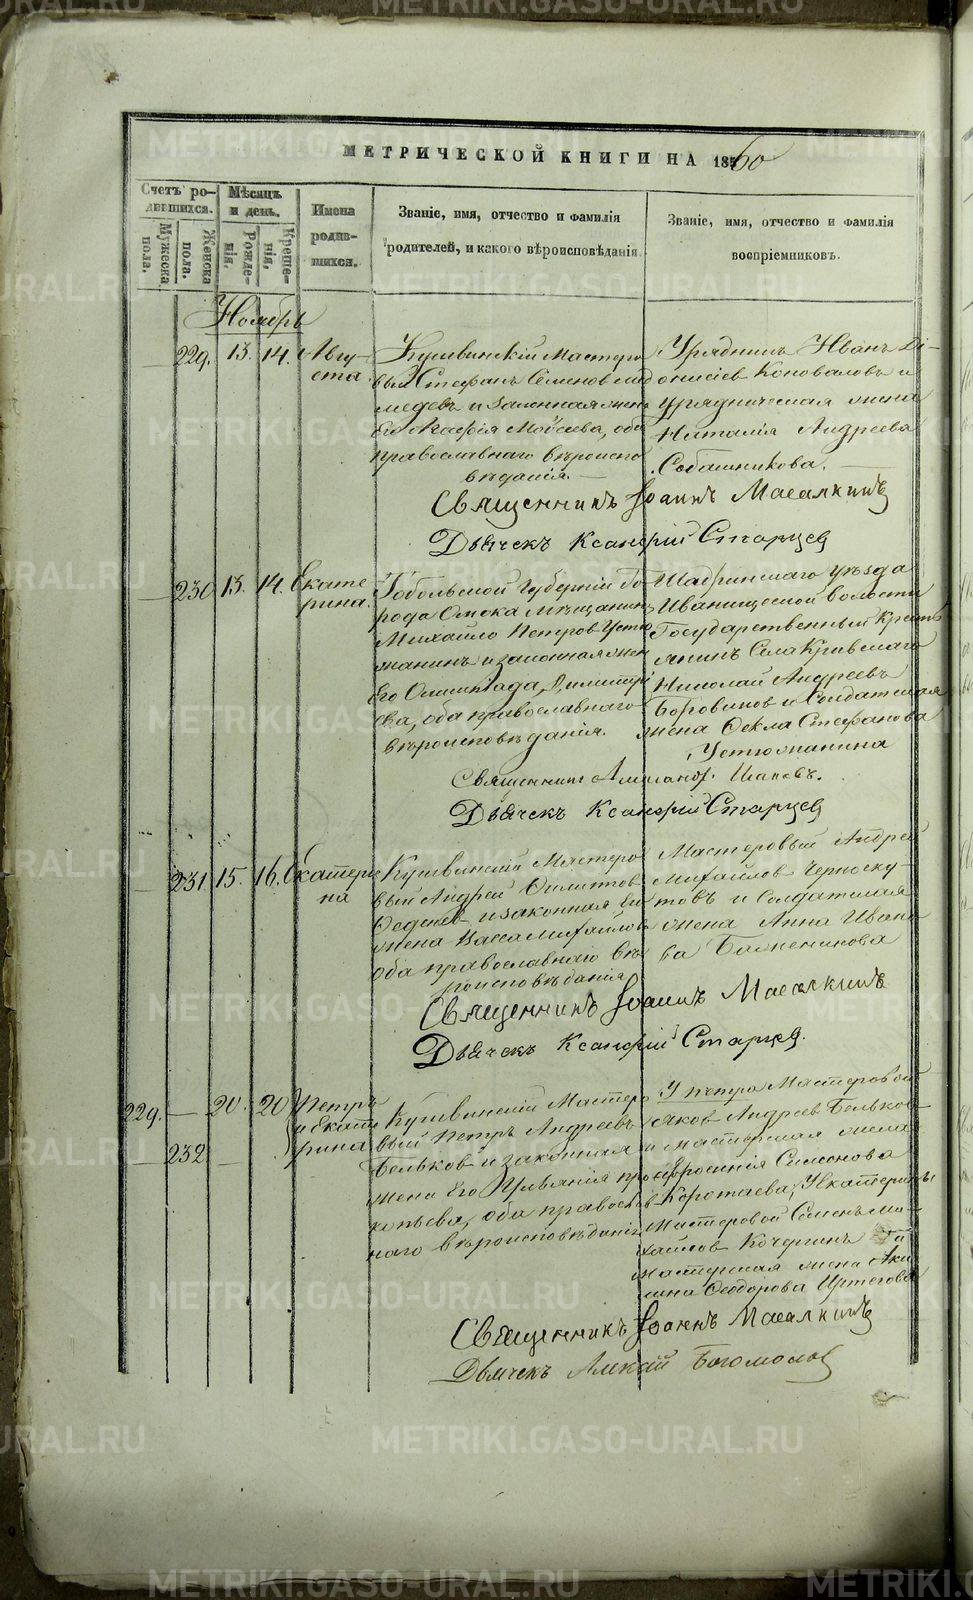 МЕТРИЧЕСКОЙ КНИГИ НА 1860
Счетъ ро-
дившихся.
Мужеска пола.
Женска пола.
Мѣсяцъ
и день.
Рожде-
нія.
Креще-
нія.
Имена
родив-
шихся.
Званіе, имя, отчество и фамилія
родителей, и какого вѣроисповѣданія.
Званіе, имя, отчество и фамилія
воспріемниковъ.
Ноябрь
229. 13. 14. Авгу-
ста.
Кушвинскій Мастеро
вый Стефанъ Семеновъ
и законная жена
Его Агафія Моѵсеева, оба
православнаго вѣроиспо
вѣданія.
Урядникъ Иванъ Ді-
онисіевъ Коноваловъ и
урядническая жена
Наталія Андреева
Собашникова.
Священникъ Іоаннъ Масалкинъ
Дьячекъ Ксанфій Старцев
230 13. 14. Екате
рина.
Тобольской Губерніи Го
рода Омска Мѣщанинъ
Михайло Петров Устю
жанинъ и законная жен
Его Олимпіада Димитрі
ева, оба православнаго
вѣроисповѣданія.
Шадринскаго уѣзда
Иванищевской волости
Государственный Кресть
янинъ Села Кривскаго
Николай Андреевъ
Боровиков и Солдатская
жена Фекла Стефанова
Устюжанина
Священникъ Александ. Шапевъ.
Дьячекъ Ксанфій Старцев
231 15. 16. Екатери
на
Кушвинскій Мастеро
вый Андрей
и законная Его
жена Васса Михайлов
оба православнаго вѣ
роисповѣданія
Мастеровый Андрей
Михайлов Черноску-
товъ и Солдатская
жена Анна Ивано
ва Балженикова
Священникъ Іоаннъ Масалкинъ
Дьячекъ Ксанфій Старцев.
229. — 20. 20 Петръ
и Екате
рина
232
Кушвинскій Мастеро
вый Петръ Андреевъ
Бѣльков и законная
жена Его Ульянія Про
копьева, оба православ
наго вѣроисповѣданія
У Петра Мастеровой
Яков Андреев Бѣльков
и мастерская жена
Ефросинія Симонова
Коротаева; У Екатерины
Мастеровой Семенъ Ми-
хайлов Кочергинъ и
мастерская жена Аки
лина Феодорова Иртегова
Священникъ Іоаннъ Масалкинъ
Дьячекъ Алексій Богомолов
METRIKI.GASO-URAL.RU